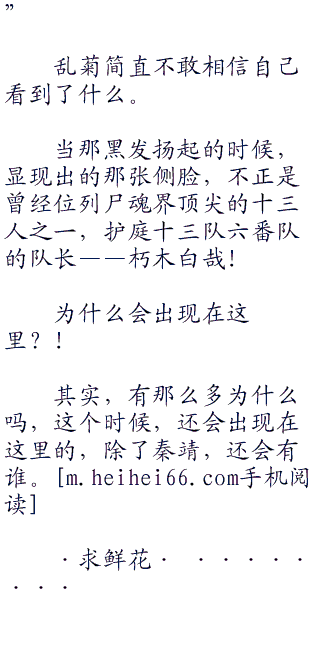 ”
乱菊简直不敢相信自己
看到了什么。
当那黑发扬起的时候，
显现出的那张侧脸，不正是
曾经位列尸魂界顶尖的十三
人之一，护庭十三队六番队
的队长——朽木白哉！
为什么会出现在这
里？！
其实，有那么多为什么
吗，这个时候，还会出现在
这里的，除了秦靖，还会有
谁。[m.heihei66.com手机阅
读]
·求鲜花· ·····
···